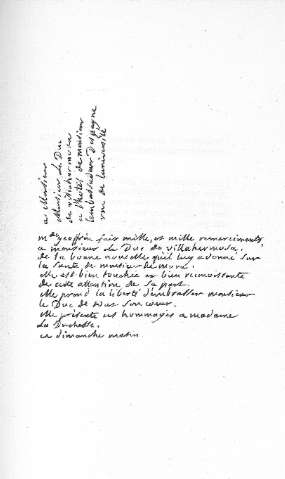 a Monsieur
Monsieur le Duc
de villahermosa
a l'hotel de monsieur
l'ambassadeur d'espagne
rue de l'université
mde geoffrin fait mille, et mille remerciments
a monsieur le Duc de villahermosa.
de la bonne nouvelle quil luy a donné sur
la santé de monsieur de mora.
elle est bien touchée et bien reconnoissante
de cette attention de sa part.
elle prend la liberté d'embrasser monsieur
le Duc de tout son coeur.
elle présente ses hommages a madame
la Duchesse.
ce dimanche matin